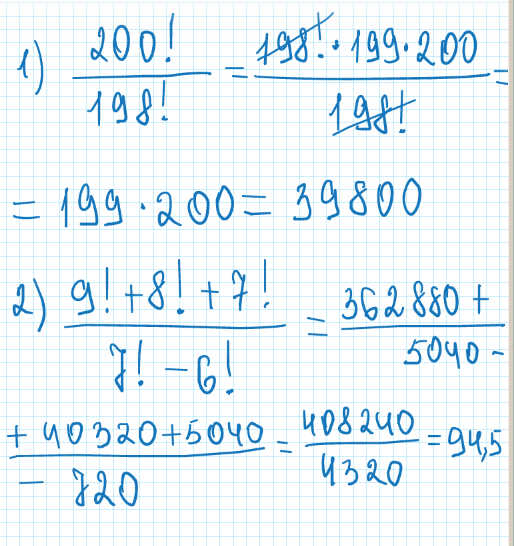 1) 200! / 198! = 198! · 199 · 200 / 198! =
= 199 · 200 = 39800
2) 9! + 8! + 7! / 7! − 6! = 362880 + / 5040 −
+ 40320 + 5040 / − 720 = 408240 / 4320 = 94,5